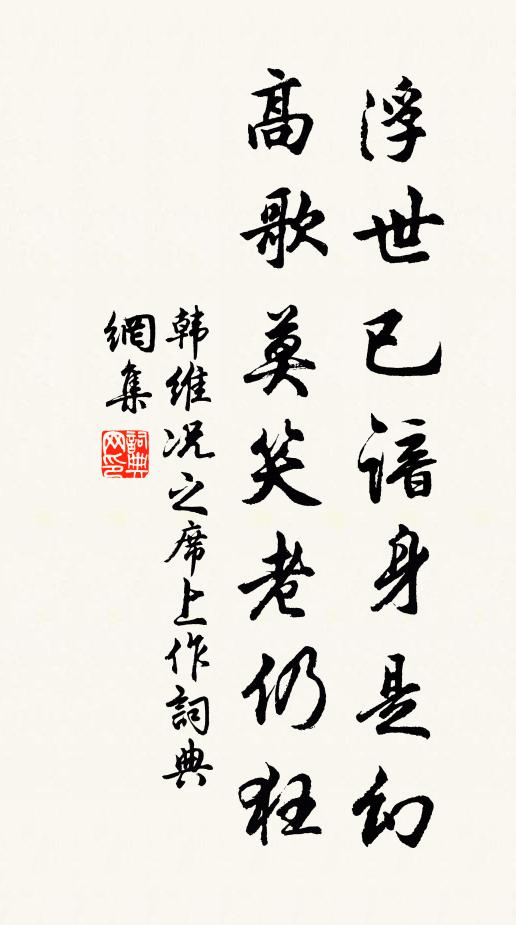 浮世已谙身是幻
高歌莫笑老仍狂
韩维况之席上作詞典
網集
詞典
网印